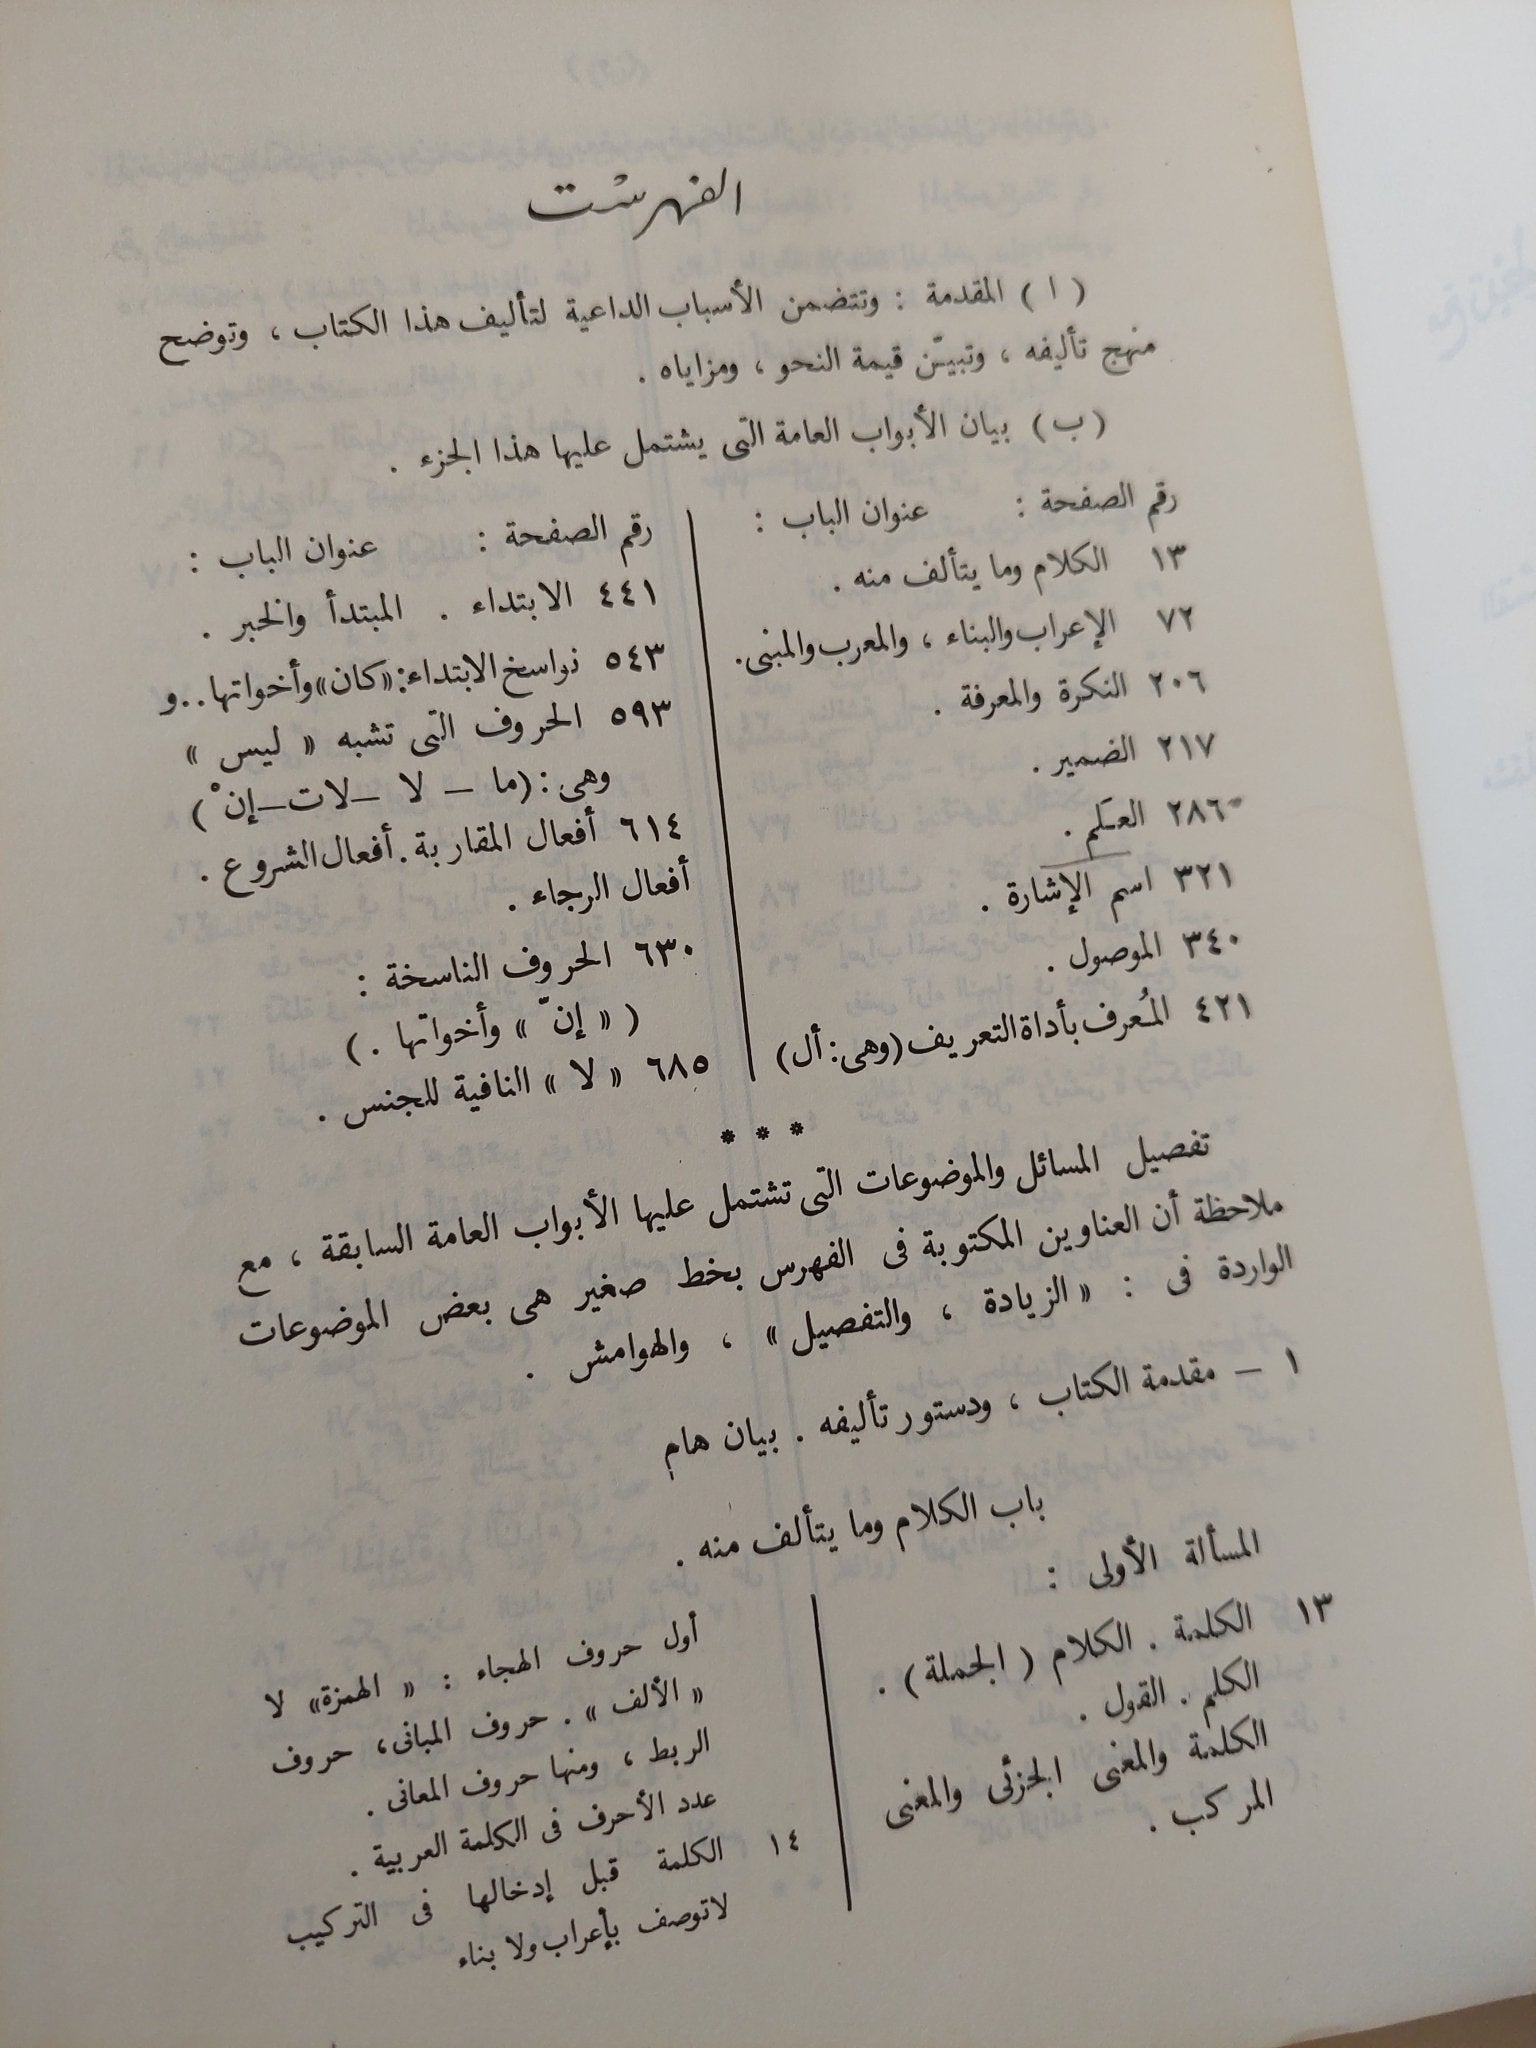 الفهرست
( ا ) المقدمة : وتتضمن الأسباب الداعية لتأليف هذا الكتاب ، وتوضح
منهج تأليفه ، وتبيّن قيمة النحو ، ومزاياه .
( ب ) بيان الأبواب العامة التى يشتمل عليها هذا الجزء .
رقم الصفحة : عنوان الباب :
١٣ الكلام وما يتألف منه .
٧٢ الإعراب والبناء ، والمعرب والمبنى .
٢٠٦ النكرة والمعرفة .
٢١٧ الضمير .
٢٨٦ العلم .
٣٢١ اسم الإشارة .
٣٤٠ الموصول .
٤٢١ المُعرف بأداة التعريف (وهى : أل)
رقم الصفحة : عنوان الباب :
٤٤١ الابتداء . المبتدأ والخبر .
٥٤٣ نواسخ الابتداء: «كان» وأخواتها . . و
٥٩٣ الحروف التى تشبه « ليس »
وهى : (ما – لا – لات – إنْ )
٦١٤ أفعال المقاربة . أفعال الشروع .
أفعال الرجاء .
٦٣٠ الحروف الناسخة :
( « إنّ » وأخواتها . )
٦٨٥ « لا » النافية للجنس .
* * *
تفصيل المسائل والموضوعات التى تشتمل عليها الأبواب العامة السابقة ، مع
ملاحظة أن العناوين المكتوبة فى الفهرس بخط صغير هى بعض الموضوعات
الواردة فى : « الزيادة ، والتفصيل » ، والهوامش .
١ – مقدمة الكتاب ، ودستور تأليفه . بيان هام
باب الكلام وما يتألف منه .
المسألة الأولى :
١٣ الكلمة . الكلام ( الجملة ) .
الكلم . القول .
الكلمة والمعنى الجزئى والمعنى
المركب .
أول حروف الهجاء : « الهمزة» لا
« الألف » . حروف المبانى ، حروف
الربط ، ومنها حروف المعانى .
عدد الأحرف فى الكلمة العربية .
١٤ الكلمة قبل إدخالها فى التركيب
لاتوصف بإعراب ولا بناء